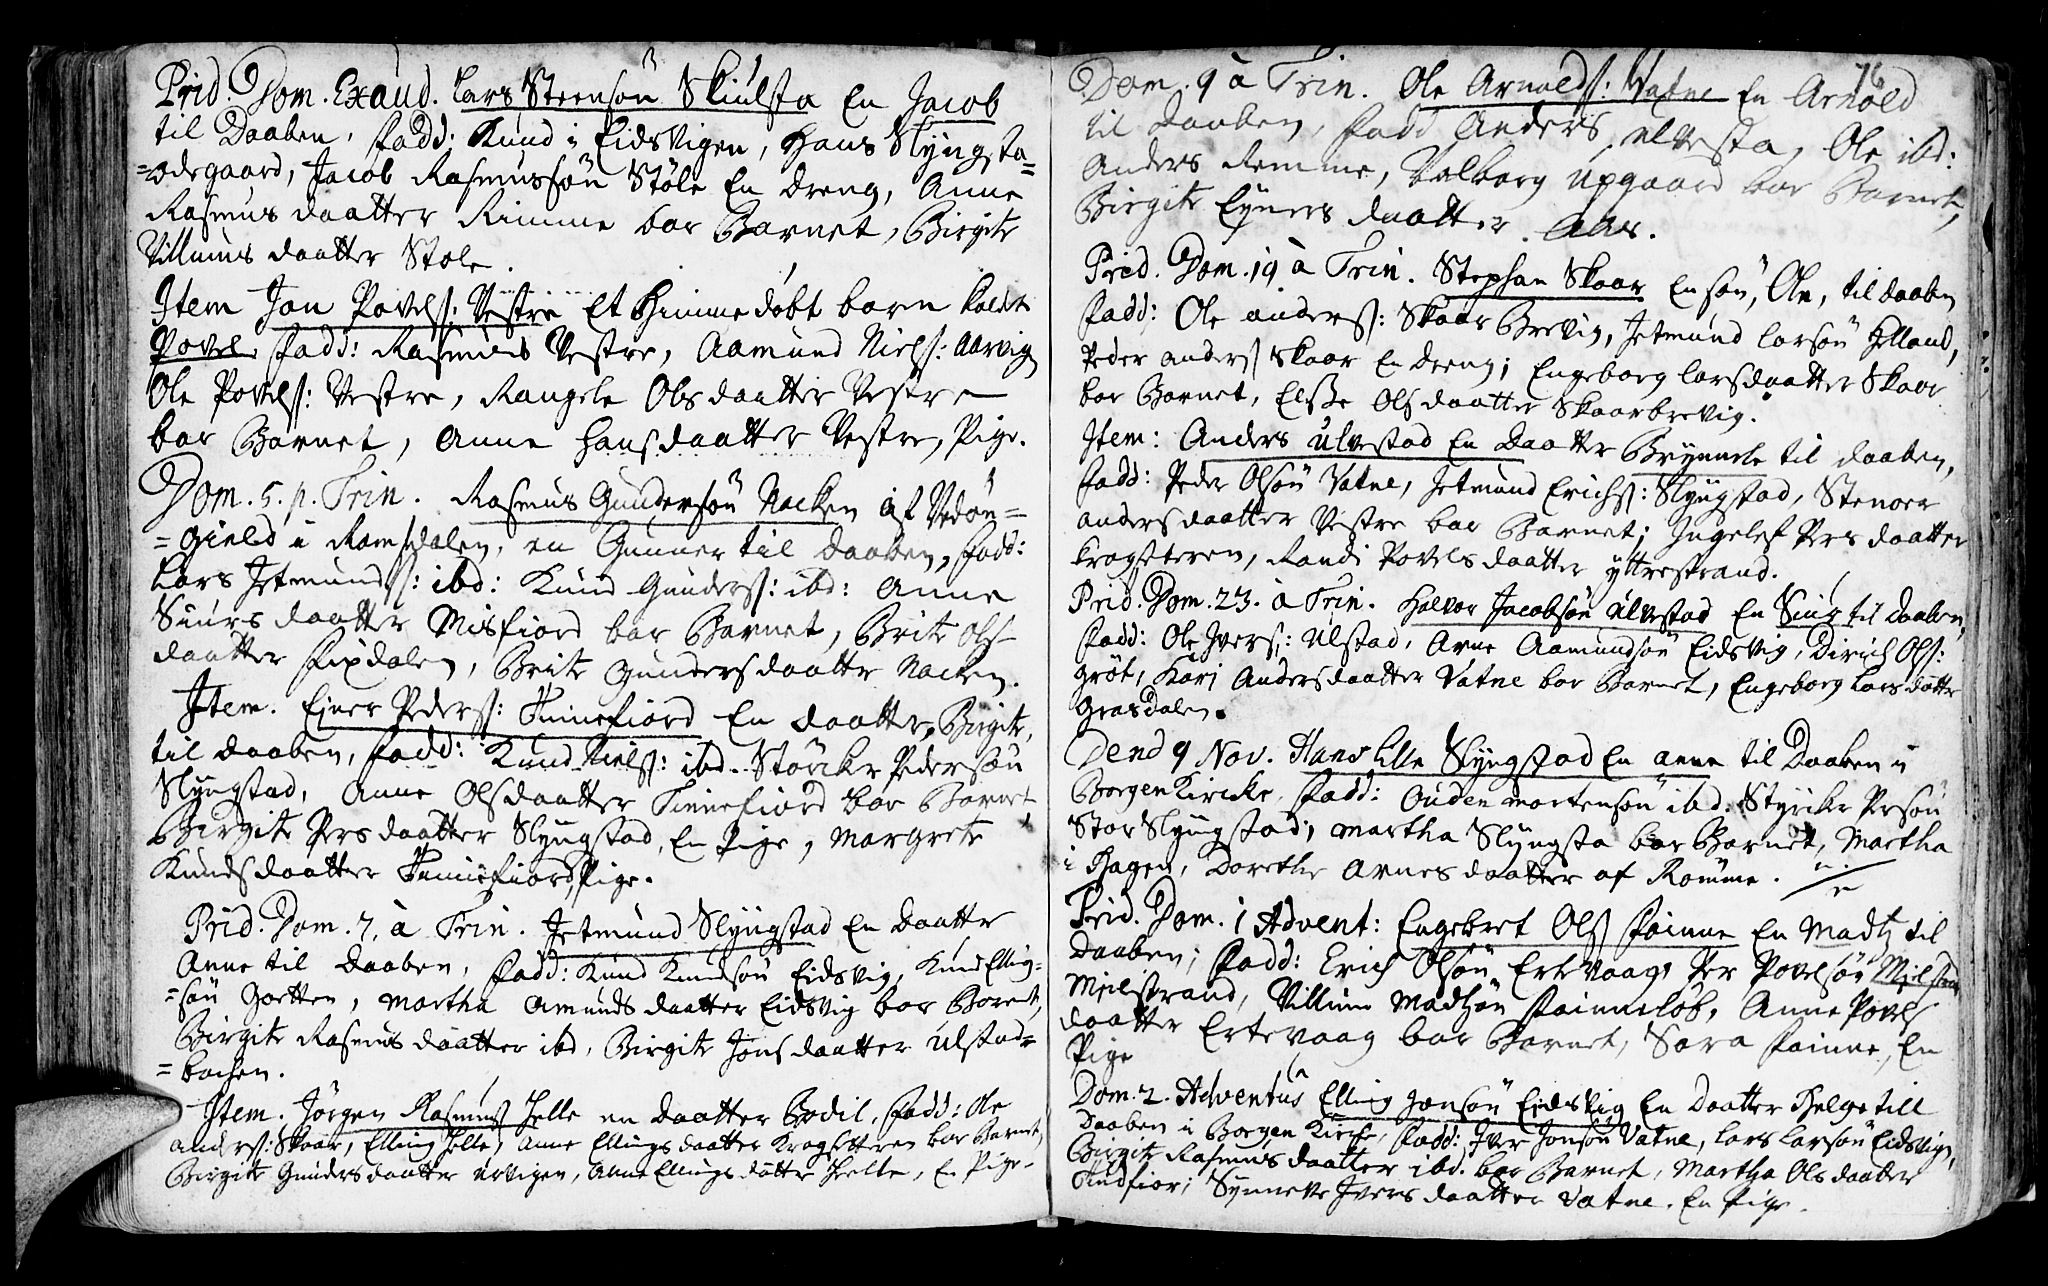 Prid. Dom. Exaud. Lars Steensön Skiulsta En Jacob
til Daaben, Fadd: Knud i Eidsvigen, Hans Slyngsta=
=ødegaard, Jacob Rasmussön Stöle En Dreng, Anne
Rasmus daatter Rimme bar Barnet, Birgite
Villums daatter Stole.
Item Jon Povels: Vestre Et hiemmedøbt barn kaldet
Povel. Fadd: Rasmus Vestre, Aamund Niels: Aarvig
Ole Povels: Vestre, Rangele Ols daatter Vestre
bar Barnet, Anne Hansdaatter Vestre, Pige.
Dom. 5. p. Trin. Rasmus Gundersön Nacken af Vedöu=
=gield i Romsdalen, en Gunner til Daaben, Fadd:
Lars Jetmunds: ibd: Knud Gunders: ibd: Anne
Siurs daatter Misfiord bar Barnet, Brite Ols
daatter Fixdalen, Brite Gundersdaatter Nacken.
Item. Ejner Peders: Tennefiord En daatter, Birgite,
til Daaben, Fadd: Knud Niels: ibd. Störcker Pedersön
Slyngstad, Anne Olsdaatter Tennefiord bar Barnet
Birgite Persdaatter Slyngstad, En Pige, Margrete
Knudsdaatter Tennefiord Pige.
Prid. Dom. 7. à Trin. Jetmund Slyngstad En Daatter
Anne til Daaben, Fadd: Knud Knudsön Eidsvig, Knud Elling=
=sön Goetten, Martha Amunds daatter Eidsvig bar Barnet,
Birgite Rasmus daatter ibd, Birgite Jons daatter Ulstad=
=bachen.
Item. Jörgen Rasmuss Helle en daatter Bodil, Fadd: Ole
Anders: Skaar, Elling Helle, Anne Ellings daatter Kragsetteren bar Barnet,
Birgite Gunders daatter Urvigen, Anne Ellingsdatter Helle, En Pige.
76
Dom. 9 à Trin. Ole Arnolds: Vatne En Arnold
til Daaben, Fadd Anders Ulvesta, Ole ibd:
Anders Remme, Valborg Upgaard bar Barnet,
Birgite Eyners daatter Aas.
Prid. Dom. 19 à Trin. Stephan Skaar En sön, Ole, til daaben
Fadd: Ole Anderss: Skaar Brevig, Jetmund Larsön Helland,
Peder Anders Skaar En dreng; Engeborg Larsdaatter Skaar
bar Barnet, Elsse Olsdaatter Skaarbrevig.
Item: Anders Ulvestad En Daatter Brynnele til daaben,
Fadd: Peder Olsön Vatne, Jetmund Erichs: Slyngstad, Stenoer
Andersdaatter Vestre bar Barnet; Ingelef Pers daatter
Kragsteren, Randi Povels daatter Yttrestrand.
Prid. Dom. 23. à Trin. Halvor Jacobsön Ulvestad En Siur til daaben,
Fadd: Ole Ivers: Ulstad, Arne Aamundsön Eidsvig, Dirich Ols:
Gröt, Kari Andersdaatter Vatne bar Barnet, Engeborg Lars datter
Grasdalen.
Dend 9 Nov. Hans Lille Slyngstad En Anne til Daaben i
Borgen Kircke, Fadd: Ouden Mortensön ibd. Styrcker Persön
Stor Slyngstad, Martha Slyngsta bar Barnet, Martha
i Hagen, Dorethe Arnes daatter af Romme.
Prid. Dom. 1 Advent: Engebret Ols Fainne En Madtz til
Daaben; Fadd: Erich Olsön Ertevaag, Per Povelsön Mielstrand
Mielstrand, Villum Madtzön Fainneløb, Anne Povels
daatter Ertevaag bar Barnet, Sara Fainne, En
Pige
Dom. 2. Adventûs Elling Jonsön Eidsvig En Daatter Helge till
Daaben i Borgen Kirche, Fadd: Iver Jonsön Vatne, Lars Larsön Eidsvign,
Birgite Rasmus daatter ibd. bar Barnet, Martha Ols daatter
Sunneve Ivers daatter Vatne. En Pige.